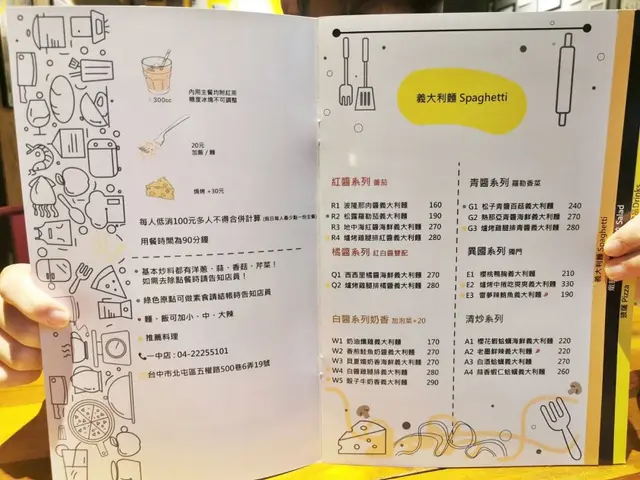 內用主餐均附紅茶
糖度冰塊不可調整
300cc
20元
加飯 / 麵
焗烤 +30元
每人低消100元多人不得合併計算
用餐時間為90分鐘
基本炒料都有洋蔥、蒜、香菇、芹菜!
如需去除點餐時請告知店員!
綠色原點可做素食請結帳時告知店員
麵、飯可加小、中、大辣
推薦料理
一中店 : 04-22255101
台中市北屯區五權路500巷6弄19號
義大利麵 Spaghetti
紅醬系列 蕃茄
R1 波隆那肉醬義大利麵 160
R2 松露蘿勒茄義大利麵 190
R3 地中海紅醬海鮮義大利麵 270
R4 爐烤雞腿排紅醬義大利麵 280
橘醬系列 紅白醬雙配
Q1 西西里橘醬海鮮義大利麵 270
Q2 爐烤雞腿排橘醬義大利麵 280
白醬系列奶香 加泡菜+20
W1 奶油燻雞義大利麵 170
W2 番煎鮭魚奶醬義大利麵 270
W3 貝夏媚奶香海鮮義大利麵 270
W4 白醬雞腿排義大利麵 280
W5 骰子牛奶香義大利麵 290
青醬系列 羅勒香菜
G1 松子青醬百菇義大利麵 240
G2 熱那亞青醬海鮮義大利麵 270
G3 爐烤雞腿排青醬義大利麵 280
異國系列 獨門
E1 櫻桃鴨胸義大利麵 210
E2 爐烤中捲吃爽爽義大利麵 330
E3 雷夢辣鮪魚義大利麵 190
清炒系列
A1 櫻花蝦蛤蠣海鮮義大利麵 220
A2 老墨鮮辣義大利麵 220
A3 白酒蛤蠣義大利麵 270
A4 蒜香蝦仁蛤蠣義大利麵 260
義大利麵 Spaghetti
Salad
Drinks
披薩 Pizza